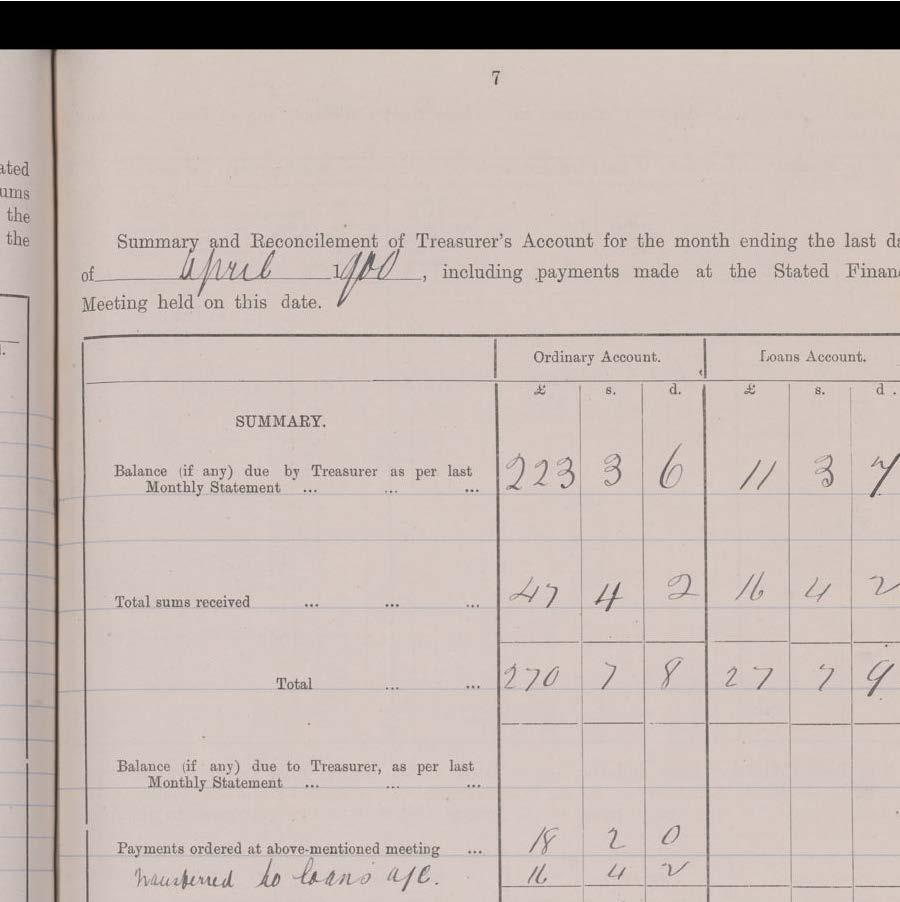 7
ated
ums
the
the
Summary and Reconcilement of Treasurer's Account for the month ending the last da
of April 1900, including payments made at the Stated Finan
Meeting held on this date.
Ordinary Account. Loans Account.
£ s. d. £ s. d.
SUMMARY.
Balance (if any) due by Treasurer as per last
Monthly Statement ... ... ... 223 3 6 11 3 7
Total sums received ... ... ... 47 4 2 16 4 2
Total ... ... 270 7 8 27 7 9
Balance (if any) due to Treasurer, as per last
Monthly Statement ... ... ...
Payments ordered at above-mentioned meeting ... 18 2 0
Transferred to loans a/c. 16 4 2